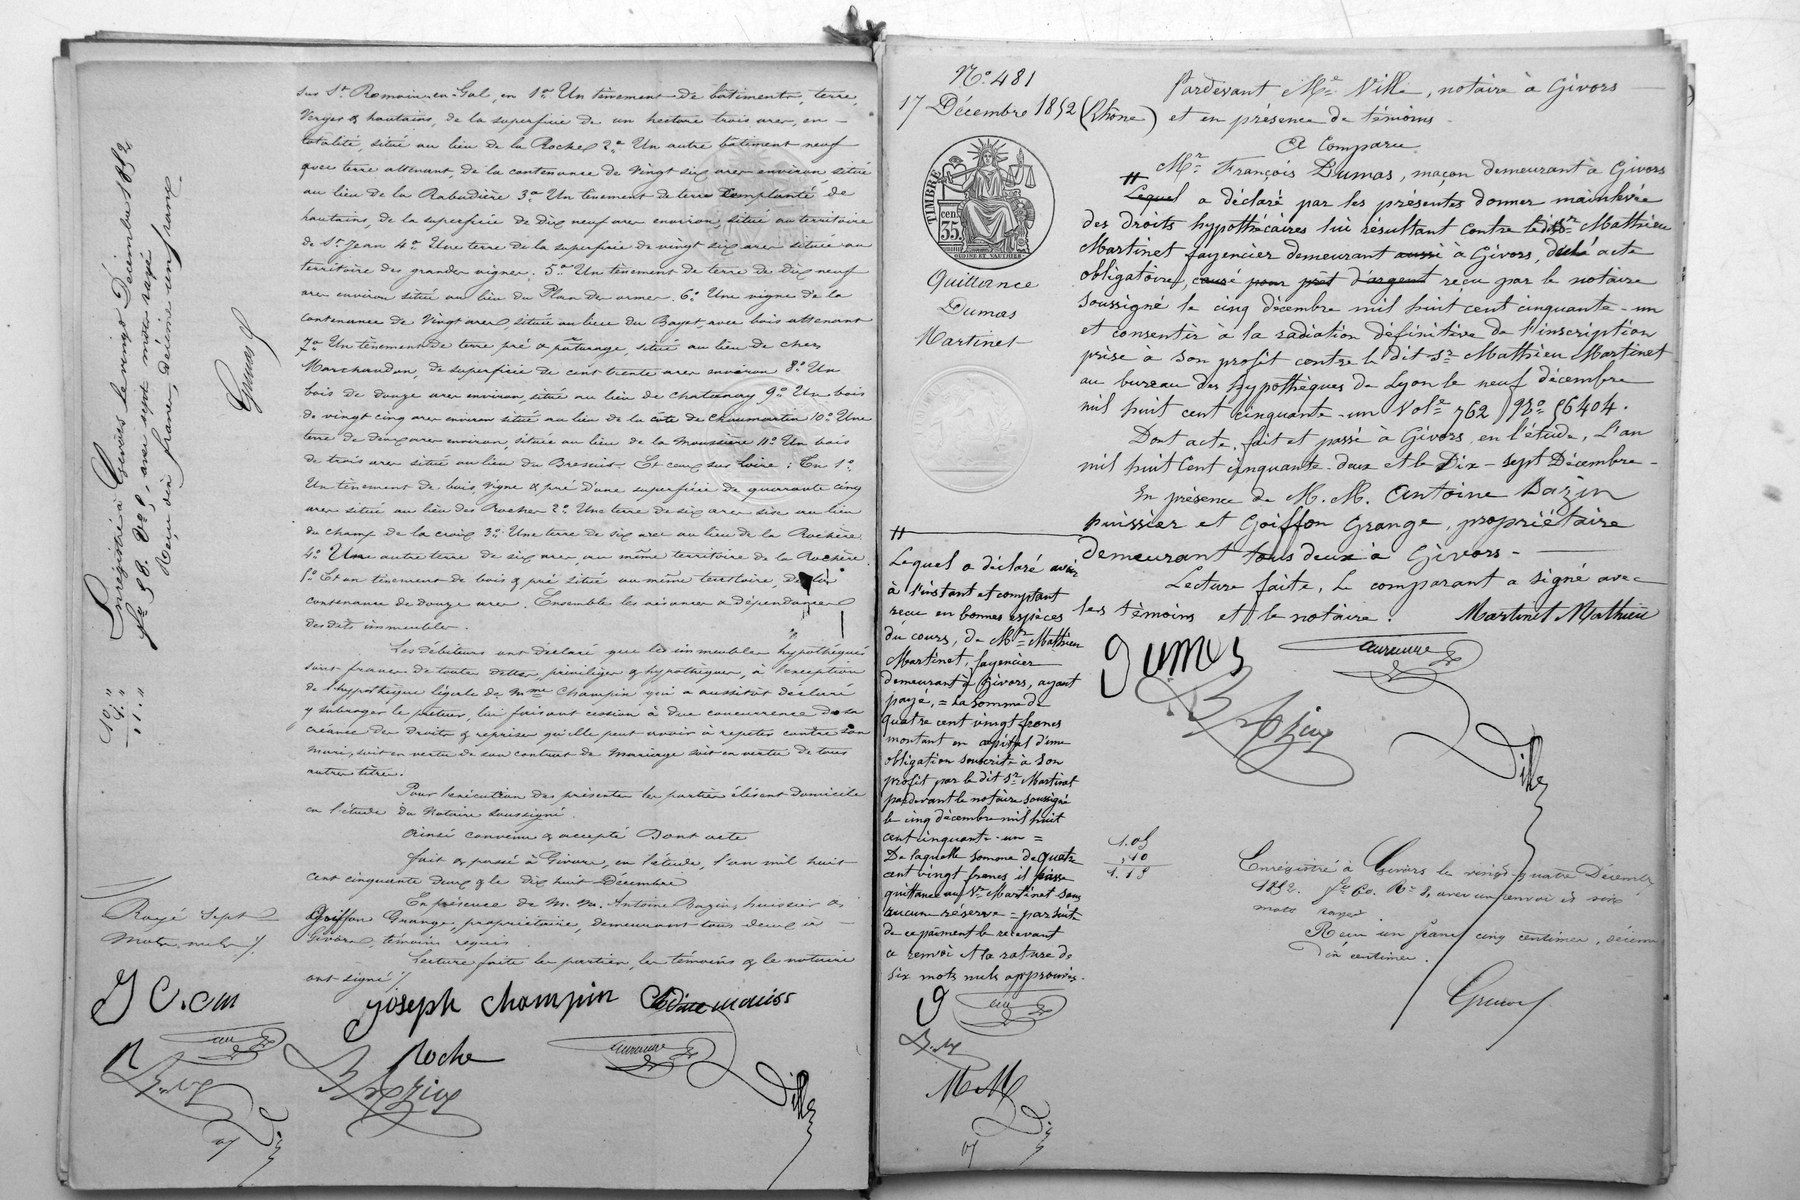 sur St Romain-en-Gal, en 1º Un tènement de bâtiments, terre,
Verger & hautains, de la superficie de un hectare trois ares, en
totalité, situé au lieu de la Roche 2º Un autre bâtiment neuf
avec terre attenant, de la contenance de Vingt six ares environ situé
au lieu de la Rabaudière 3º Un tènement de terre Complanté de
hautains, de la superficie de Dix neuf ares environ, situé au territoire
de St Jean 4º Une terre de la superficie de vingt six ares située au
territoire des grandes vignes. 5º Un tènement de terre de dix neuf
ares environ situé au lieu du Plan de 6º Une vigne de la
contenance de Vingt ares située au lieu du avec bois attenant
7º Un tènement de terre pré & pâturage, situé au lieu de chez
Marchandon, de superficie de cent trente ares environ 8º Un
bois de douze ares environ situé au lieu de Chatanay 9º Un bois
de vingt cinq ares environ situé au lieu de la côte de Chaumartin 10º Une
terre de deux ares environ, située au lieu de la Moussière 11º Un bois
de trois ares situé au lieu du Et ceux sur Loire : En 1º
Un tènement de bois, vigne & pré d'une superficie de quarante cinq
ares situé au lieu des Rocher 2º Une terre de six ares sise au lieu
du champ de la croix 3º Une terre de six ares au lieu de la Rochère
4º Une autre terre de six ares, au même territoire de la Rochère.
5º Et un tènement de bois & pré situé au même territoire, de la
contenance de douze ares. Ensemble les aisances & dépendances
des dits immeubles.
Les débiteurs ont déclaré que les immeubles hypothéqués
sont francs de toutes dettes, privilèges & hypothèques, à l'exception
de l'hypothèque légale de Mme Champin qui a aussitôt déclaré
y subroger le prêteur, lui faisant cession à due concurrence de sa
créance des droits & reprises qu'elle peut avoir à répéter contre son
mari, soit en vertu de son contrat de mariage soit en vertu de tous
autres titres.
Pour l'exécution des présentes les parties élisent domicile
en l'étude du Notaire soussigné.
Ainsi convenu & accepté Dont acte
fait & passé à Givors, en l'étude, l'an mil huit
cent cinquante deux & le dix huit Décembre
En présence de M.M. Antoine Bazin, huissier &
Goiffon Grange, propriétaire, demeurant tous deux à
Givors, témoins requis
Lecture faite les parties, les témoins & le notaire
ont signé
Enregistré à Givors le vingt Décembre 1852
fº 58. Vº 5, avec sept mots rayés
Reçu dix francs, décime un franc
10 " "
1 " "
11 " "
Rayé Sept
Mots nuls
J C. cm
Joseph Champin
Roche
Ville
Nº 481
17 Décembre 1852
TIMBRE
cen.
35
OUDINE ET VAUTHIER
Quittance
Dumas
Martinet
Pardevant Me Ville, notaire à Givors
(Rhône) et en présence de témoins
A Comparu
Mr François Dumas, maçon demeurant à Givors
Lequel a déclaré par les présentes donner mainlevée
des droits hypothécaires lui résultant contre ledit Sr Mathieu
Martinet fayencier demeurant aussi à Givors, acte
obligatoire, causé pour prêt d'argent reçu par le notaire
soussigné le cinq décembre mil huit cent cinquante-un
et consentir à la radiation définitive de l'inscription
prise a son profit contre le dit Sr Mathieu Martinet
au bureau des hypothèques de Lyon le neuf décembre
mil huit cent cinquante-un Vole 762 Nº 56404.
Dont acte, fait et passé à Givors, en l'étude, L'an
mil huit Cent cinquante-deux et le Dix-sept Décembre
En présence de M.M. Antoine Bazin
huissier et Goiffon Grange, propriétaire
demeurant tous deux à Givors
Lecture faite, le comparant a signé avec
les témoins et le notaire. Martinet Mathieu
Lequel a déclaré avoir
à l'instant et comptant
reçu en bonnes espèces
du cours, de Mr Mathieu
Martinet, fayencier
demeurant à Givors, ayant
payé, = La somme de
quatre cent vingt francs
montant en capital d'une
obligation souscrite à son
profit par le dit Sr Martinet
pardevant le notaire soussigné
le cinq décembre mil huit
cent cinquante-un =
De laquelle somme de quatre
cent vingt francs il passe
quittance au Sr Martinet sans
aucune réserve = par suite
de ce paiement le recevant
a renvoi et la rature de
six mots nuls approuvés.
Dumas
Ville
1.05
,10
1.15
Enregistré à Givors le vingt-quatre Décembre
1852. fº 60. Rº 8, avec un renvoi et six
mots rayés.
Reçu un franc cinq centimes, décime
dix centimes.
M M